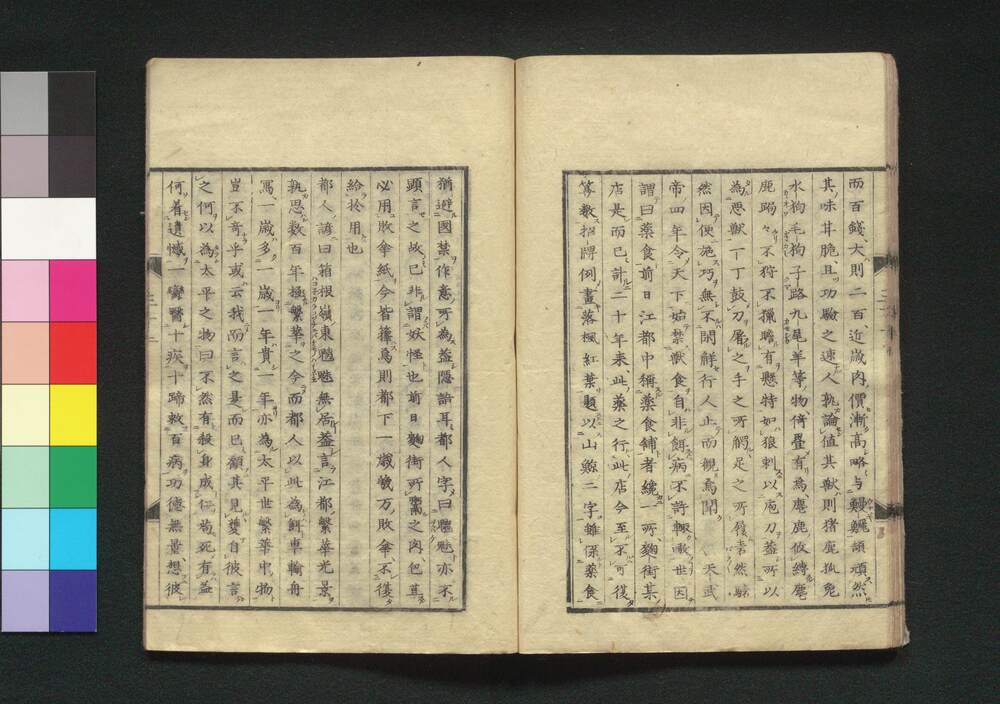 而百錢大則二百近歲肉價漸高略与鰻鱺頡頏然
其味甘脆且功驗之速人孰論値其獸則猪鹿狐兔
水狗毛狗子路九尾羊等物倚疊有焉麀鹿攸縛麀
鹿蹢々不狩不獵瞻有懸特如狼刺以庖刀蓋所以
為悪獸一丁鼓刀屠之手之所觸足之所履砉然騞
然因便施巧無不開解行人止而觀焉聞 天武
帝四年令天下始禁獸食自非餌病不許輙噉世因
謂曰藥食前日江都中稱藥食鋪者纔一所麴街某
店是而已計二十年来此藥之行此店今至不可復
筭数招牌例畫落楓紅葉題以山鯨二字雖係藥食
猶避國禁作意所為蓋隱語耳都人字曰魑魅亦不
顕言之故已非謂妖怪也前日麴街所鬻之肉包苴
必用敗傘紙今皆籜焉則都下一歲幾万敗傘不復
給於用也
都人諺曰箱根嶺東魑魅無居蓋言江都繁華光景
孰思数百年極繁華之今而都人以此為餌車輸舟
冩一歲多一歲一年貴一年亦為太平世繁華中物
豈不奇乎或云我而言之是而已顧其見獲自彼言
之何以為太平之物曰不然有殺身成仁苟死有益
何着遺憾一臠醫十疾十蹄救百病功德無量想彼